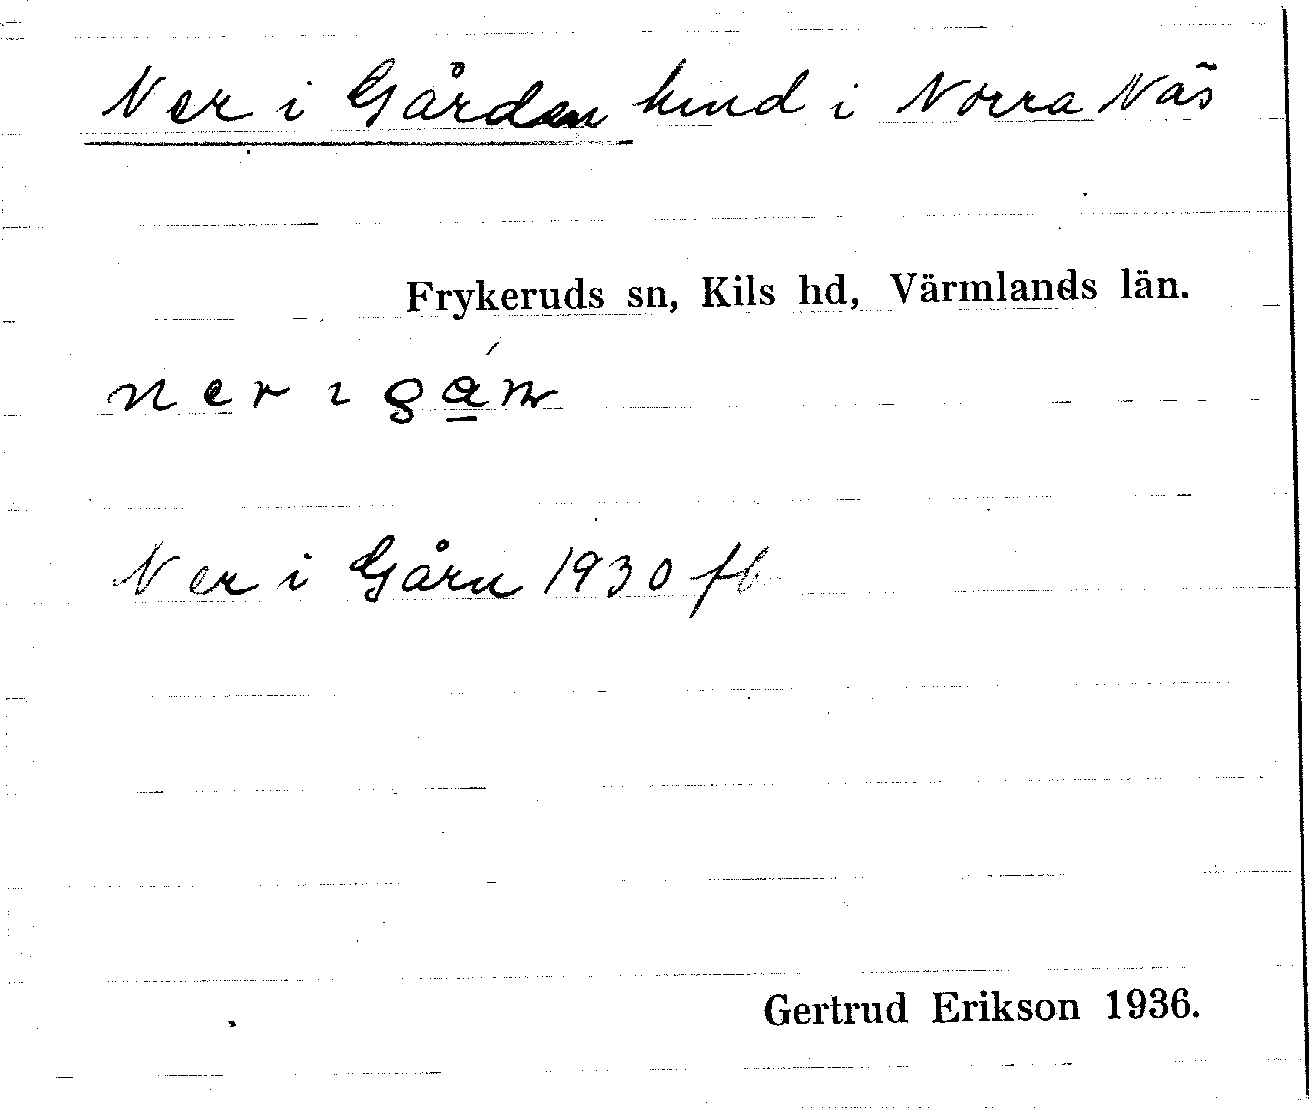 Ner i Gården hmd i Norra Näs
Frykeruds sn, Kils hd, Värmlands län.
ner ɩ gá̲ɳ
Ner i Gårn 1930 fb
Gertrud Erikson 1936.